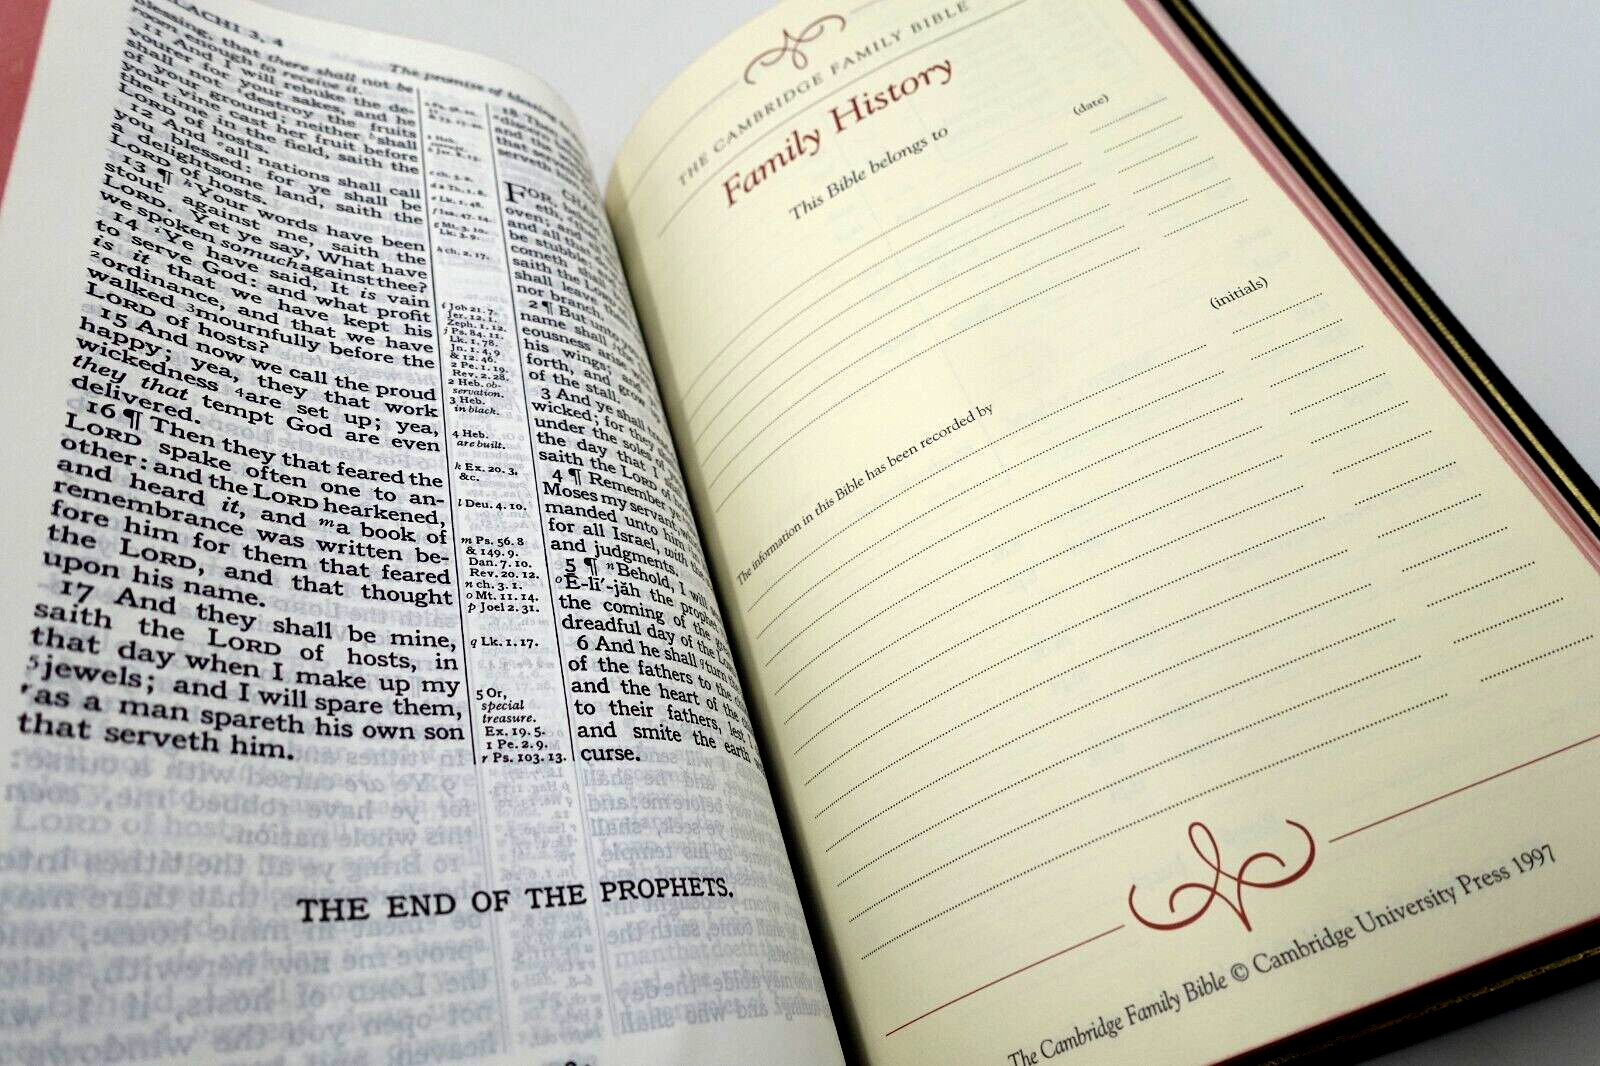 LACHI 3, 4
The promise of blessing
blessing, that there shall not be
room enough to receive it.
11 And I will rebuke the de-
vourer for your sakes, and he
shall not destroy the fruits
of your ground; neither shall
your vine cast her fruit before
the time in the field, saith the
LORD of hosts.
12 And all nations shall call
you blessed: for ye shall be
a delightsome land, saith the
LORD of hosts.
13 ¶ h Your words have been
stout against me, saith the
LORD. Yet ye say, What have
we spoken so much against thee?
14 i Ye have said, It is vain
to serve God: and what profit
is it that we have kept his
2 ordinance, and that we have
walked 3 mournfully before the
LORD of hosts?
15 And now we call the proud
happy; yea, they that work
wickedness 4 are set up; yea,
they that tempt God are even
delivered.
16 ¶ Then they that feared the
LORD spake often one to an-
other: and the LORD hearkened,
and heard it, and m a book of
remembrance was written be-
fore him for them that feared
the LORD, and that thought
upon his name.
17 And they shall be mine,
saith the LORD of hosts, in
that day when I make up my
5 jewels; and I will spare them,
r as a man spareth his own son
that serveth him.
h ch. 2. 17.
i Job 21. 7.
Jer. 12. 1.
Zeph. 1. 12.
j Ps. 84. 11.
Lk. 1. 78.
Jn. 1. 4, 9
& 12. 46.
2 Pe. 1. 19.
Rev. 2. 28.
2 Heb. ob-
servation.
3 Heb.
in black.
4 Heb.
are built.
k Ex. 20. 3,
&c.
l Deu. 4. 10.
m Ps. 56. 8
& 149. 9.
Dan. 7. 10.
Rev. 20. 12.
n ch. 3. 1.
o Mt. 11. 14.
p Joel 2. 31.
q Lk. 1. 17.
5 Or,
special
treasure.
Ex. 19. 5.
1 Pe. 2. 9.
r Ps. 103. 13.
18 Then
and the
that
serveth
FOR,
eth,
oven; and
and all that
be stubble
cometh shall
saith the LORD
shall leave
nor branch.
2 ¶ But unto
name shall
eousness arise
his wings; and
forth, and grow
of the stall.
3 And ye shall
wicked; for they
under the soles of
the day that I
saith the LORD of
4 ¶ Remember
Moses my servant,
manded unto him
for all Israel, with the
and judgments.
5 ¶ n Behold, I will
o Ē-lī′-jăh the prophet
the coming of the
dreadful day of the LORD
6 And he shall q turn the
of the fathers to the
and the heart of the
to their fathers, lest I
and smite the earth
curse.
THE END OF THE PROPHETS.
THE CAMBRIDGE FAMILY BIBLE
Family History
This Bible belongs to
(date)
The information in this Bible has been recorded by
(initials)
The Cambridge Family Bible © Cambridge University Press 1997